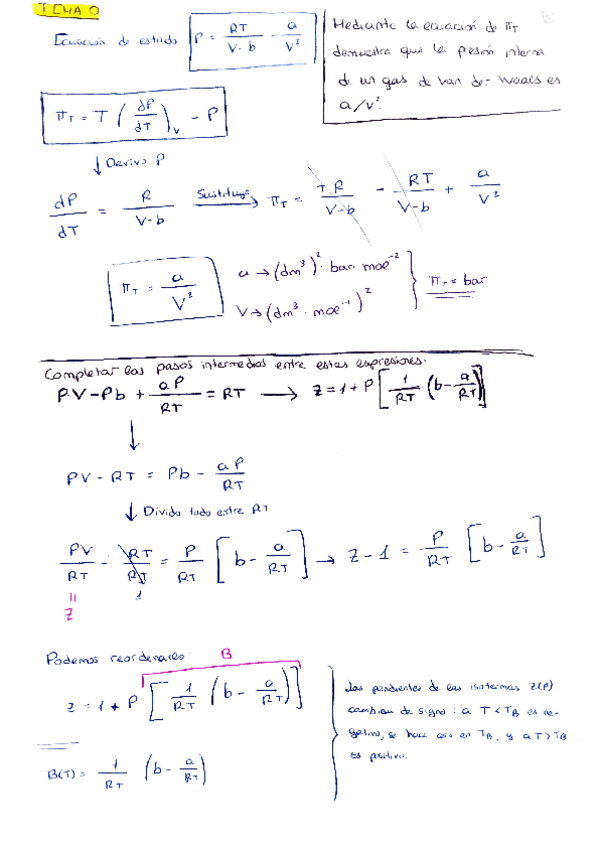 TEMA 0
Ecuación de estado P = RT/(V-b) - a/V²
Mediante la ecuación de πT
demuestra que la presión interna
de un gas de Van der-Waals es
a/V².
πT = T (dP/dT)V - P
↓ Derivo P
dP/dT = R/(V-b) Sustituyo → πT = TR/(V-b) - RT/(V-b) + a/V²
πT = a/V²
a → (dm³)² · bar · moe⁻²
V → (dm³ · moe⁻¹)²
πT = bar
Completar los pasos intermedios entre estas expresiones.
PV - Pb + aP/RT = RT → Z = 1 + P [1/RT (b - a/RT)]
↓
PV - RT = Pb - aP/RT
↓ Divido todo entre RT
PV/RT - RT/RT = P/RT [b - a/RT] → Z - 1 = P/RT [b - a/RT]
= 1
Z
Podemos reordenarlo: B
Z = 1 + P [1/RT (b - a/RT)]
B(T) = 1/RT (b - a/RT)
Las pendientes de las isotermas Z(P)
cambian de signo: a T < TB es ne-
gativo, se hace cero en TB, y a T > TB
es positivo.